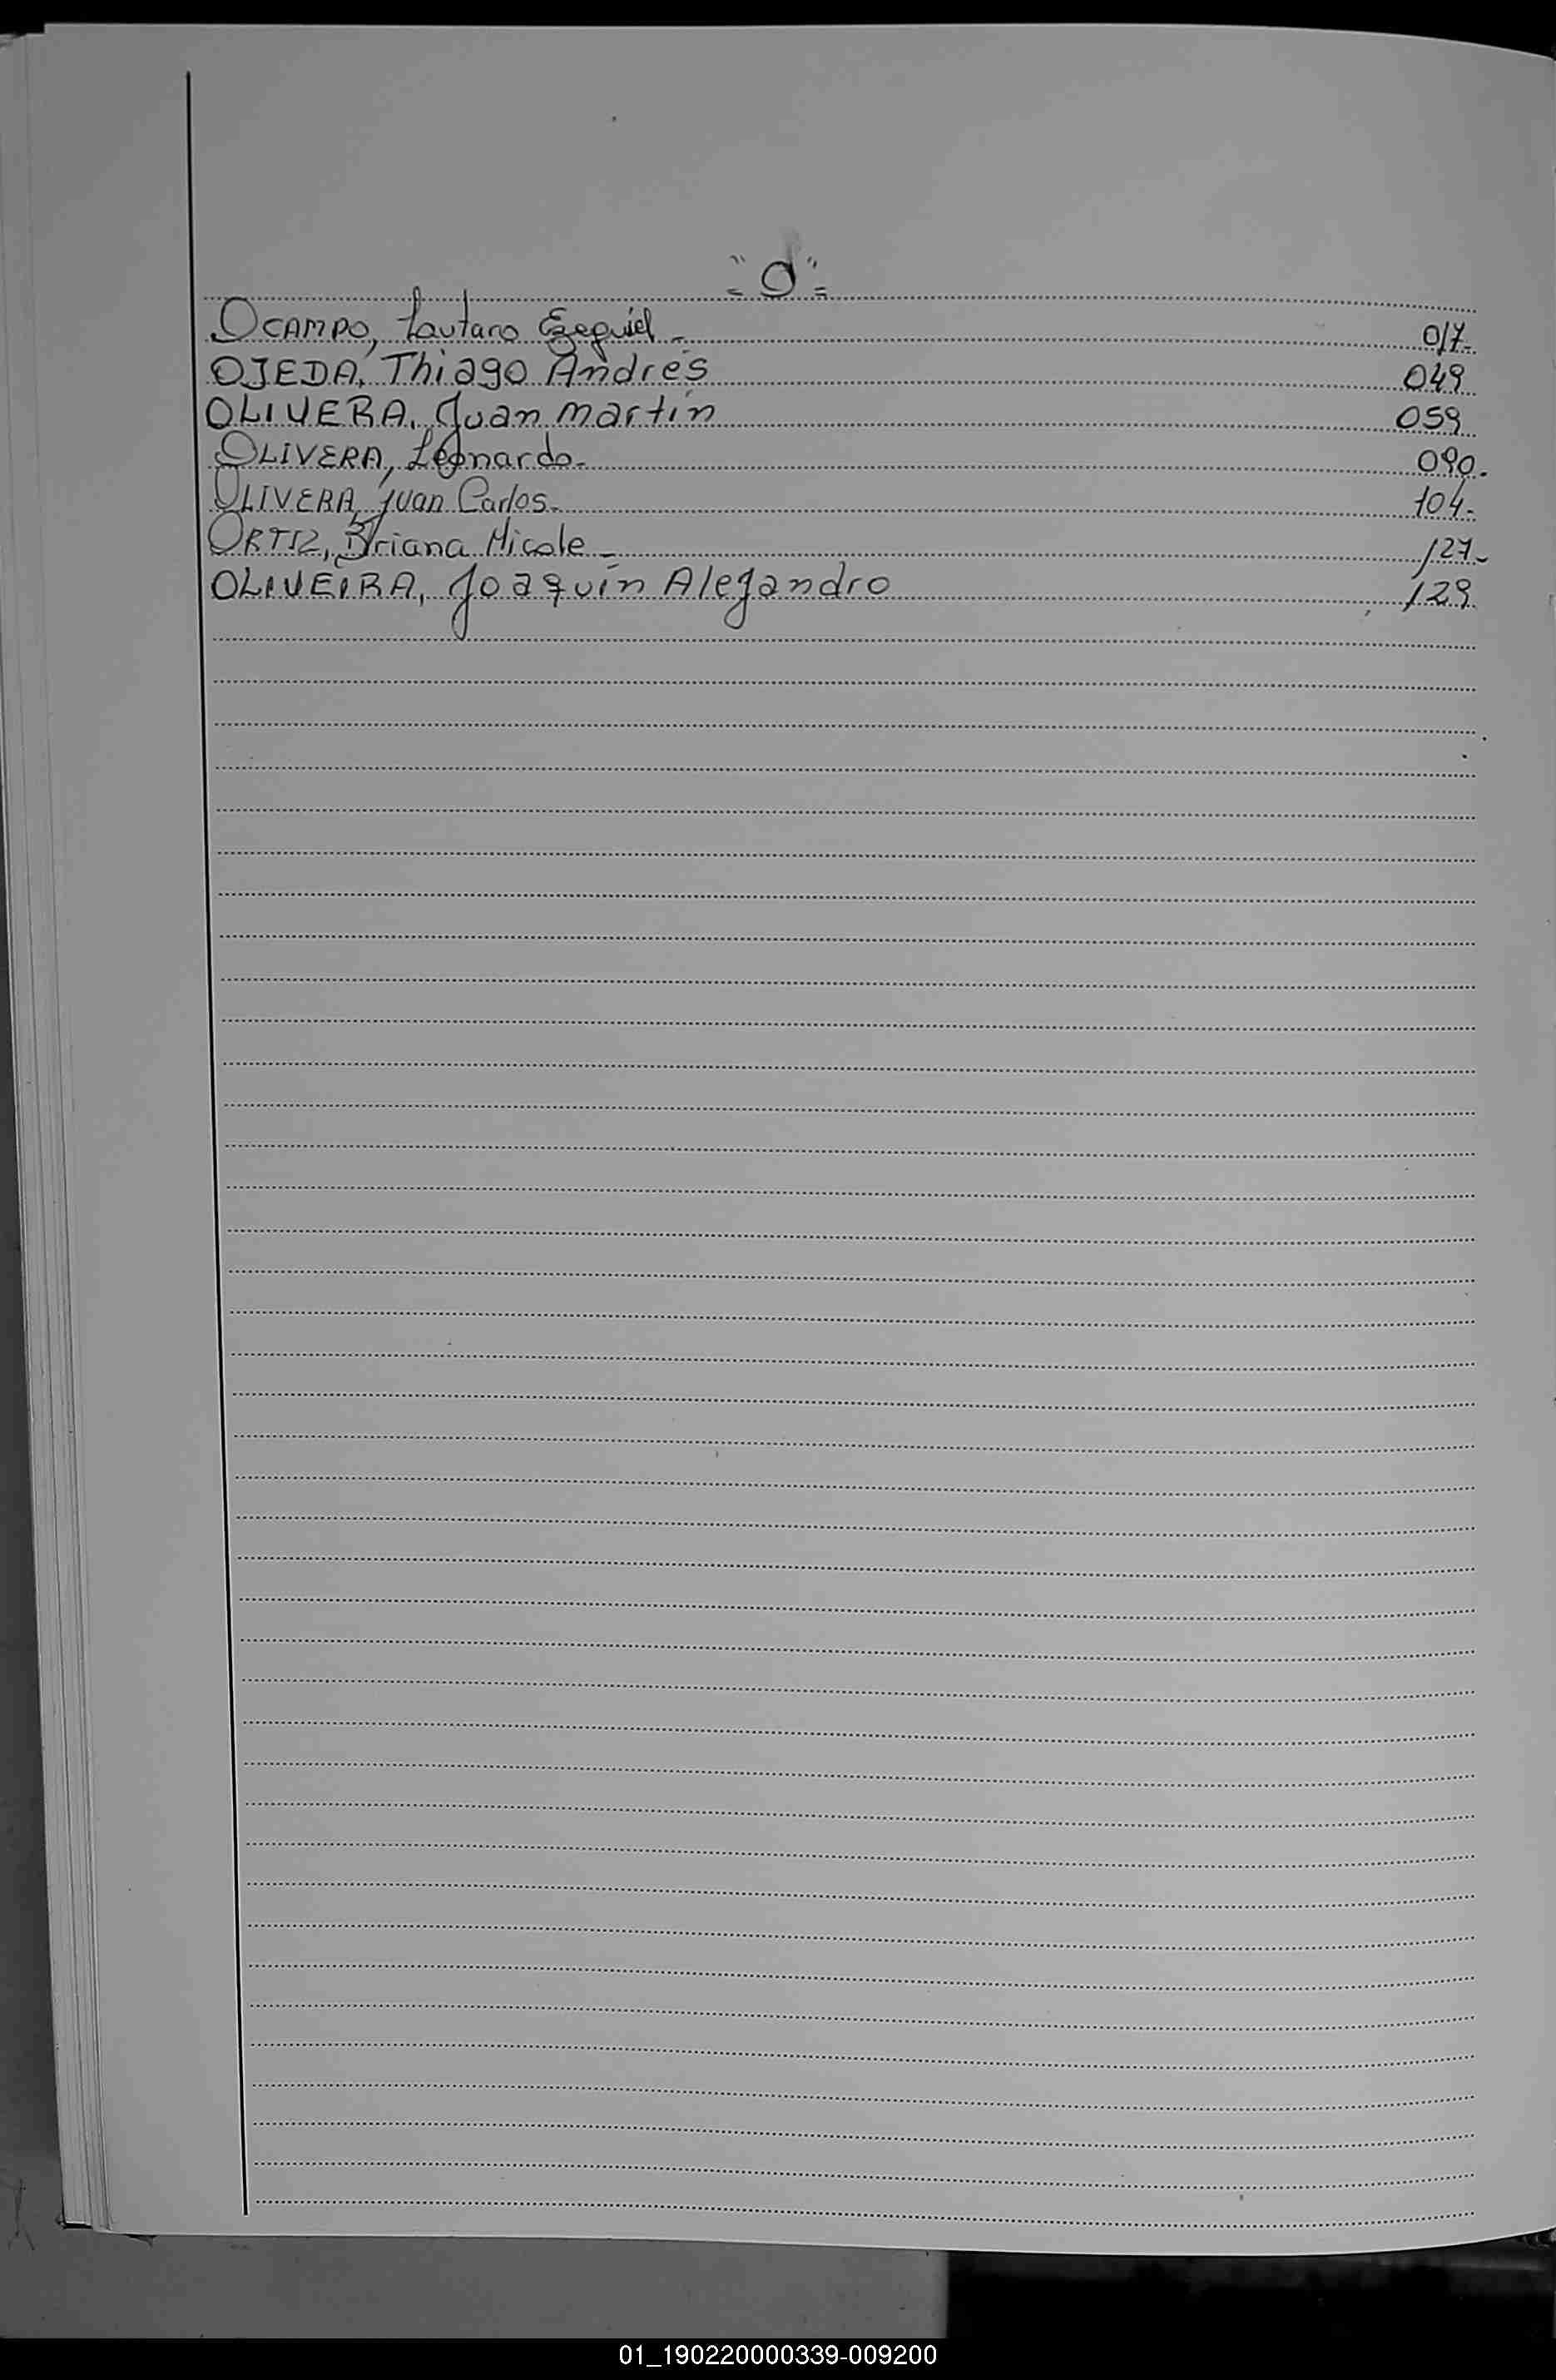 "O"
OCAMPO, Lautaro Ezequiel - 017-
OJEDA, Thiago Andrés 049
OLIVERA, Juan martín 059
OLIVERA, Leonardo- 090.
OLIVERA, Juan Carlos- 104-
ORTIZ, Briana Nicole - 127-
OLIVEIRA, Joaquín Alejandro 129
01_190220000339-009200